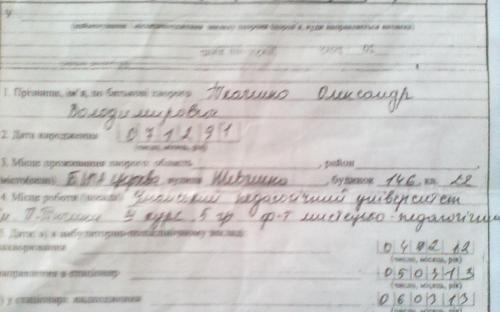 у
(найменування і місцезнаходження закладу охорони здоров'я, куди направляється виписка)
1. Прізвище, ім'я, по батькові хворого Ткаченко Олександр
Володимирович
2. Дата народження 0 7 1 2 9 1
(число, місяць, рік)
3. Місце проживання хворого: область , район
місто(село) вулиця Шевченка , будинок 146 кв. 22
4. Місце роботи (посада) Уманський педагогічний університет
ім. П. Тичини 4 курс, 5 гр ф-т мистецько-педагогічний
5. Дати: а) в амбулаторно-поліклінічному закладі:
захворювання 0 4 0 2 1 2
(число, місяць, рік)
направлення в стаціонар 0 5 0 3 1 3
(число, місяць, рік)
б) у стаціонарі: надходження 0 6 0 3 1 3